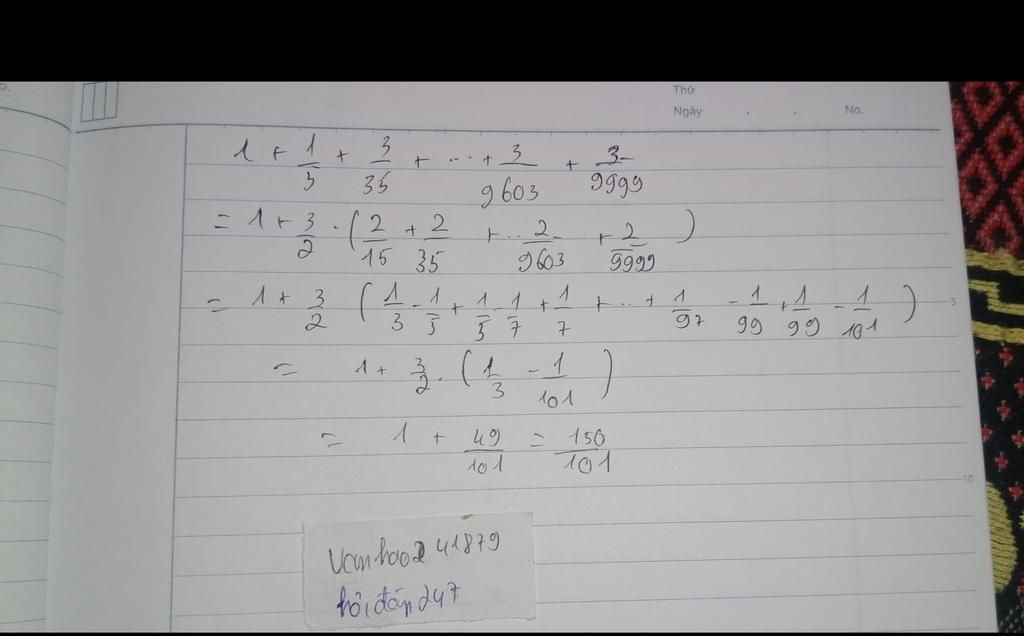 Thứ
Ngày . . No.
1 + 1/5 + 3/35 + ... + 3/9603 + 3/9999
= 1 + 3/2 . ( 2/15 + 2/35 + .. 2/9603 + 2/9999 )
= 1 + 3/2 ( 1/3 - 1/5 + 1/5 - 1/7 + 1/7 + .. + 1/97 - 1/99 + 1/99 - 1/101 )
5
= 1 + 3/2 . ( 1/3 - 1/101 )
= 1 + 49/101 = 150/101
10
vanhao2 41879
hỏi đáp 247